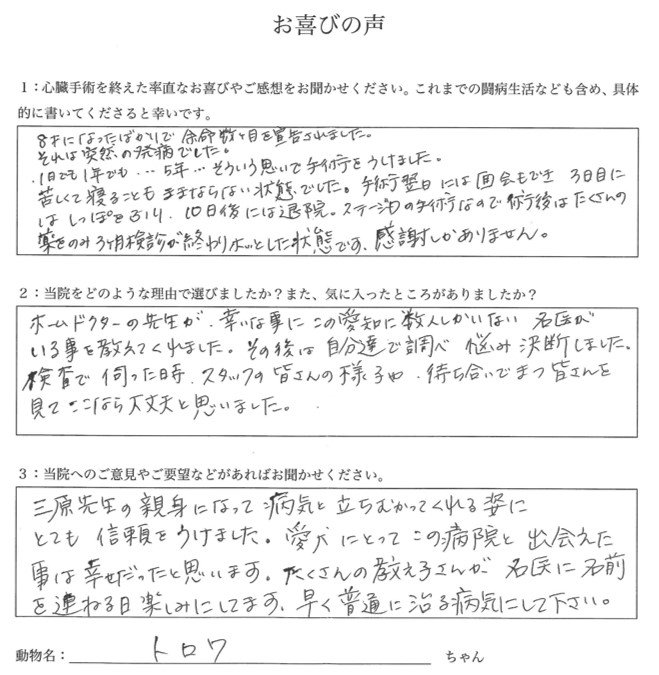 お喜びの声
1：心臓手術を終えた率直なお喜びやご感想をお聞かせください。これまでの闘病生活なども含め、具体
的に書いてくださると幸いです。
8才になったばかりで 余命数ヶ月を宣告されました。
それは突然の発病でした。
1日でも1年でも…5年…そういう思いで手術をうけました。
苦しくて寝ることもままならない状態でした。手術翌日には面会もでき 3日目に
は しっぽをふり、10日後には退院。ステージDの手術なので術後はたくさんの
薬をのみ3ヶ月検診が終わりホッとした状態です、感謝しかありません。
2：当院をどのような理由で選びましたか？また、気に入ったところがありましたか？
ホームドクターの先生が、幸いな事にこの愛知に数人しかいない 名医が
いる事を教えてくれました。その後は自分達で調べ 悩み決断しました。
検査で伺った時、スタッフの皆さんの様子や、待ち合いでまつ皆さんを
見てここなら大丈夫と思いました。
3：当院へのご意見やご要望などがあればお聞かせください。
三原先生の親身になって病気と立ちむかってくれる姿に
とても 信頼をうけました。愛犬にとってこの病院と出会えた
事は幸せだったと思います。たくさんの教え子さんが 名医に名前
を連ねる日楽しみにしてます、早く普通に治る病気にして下さい。
動物名：トロワ ちゃん